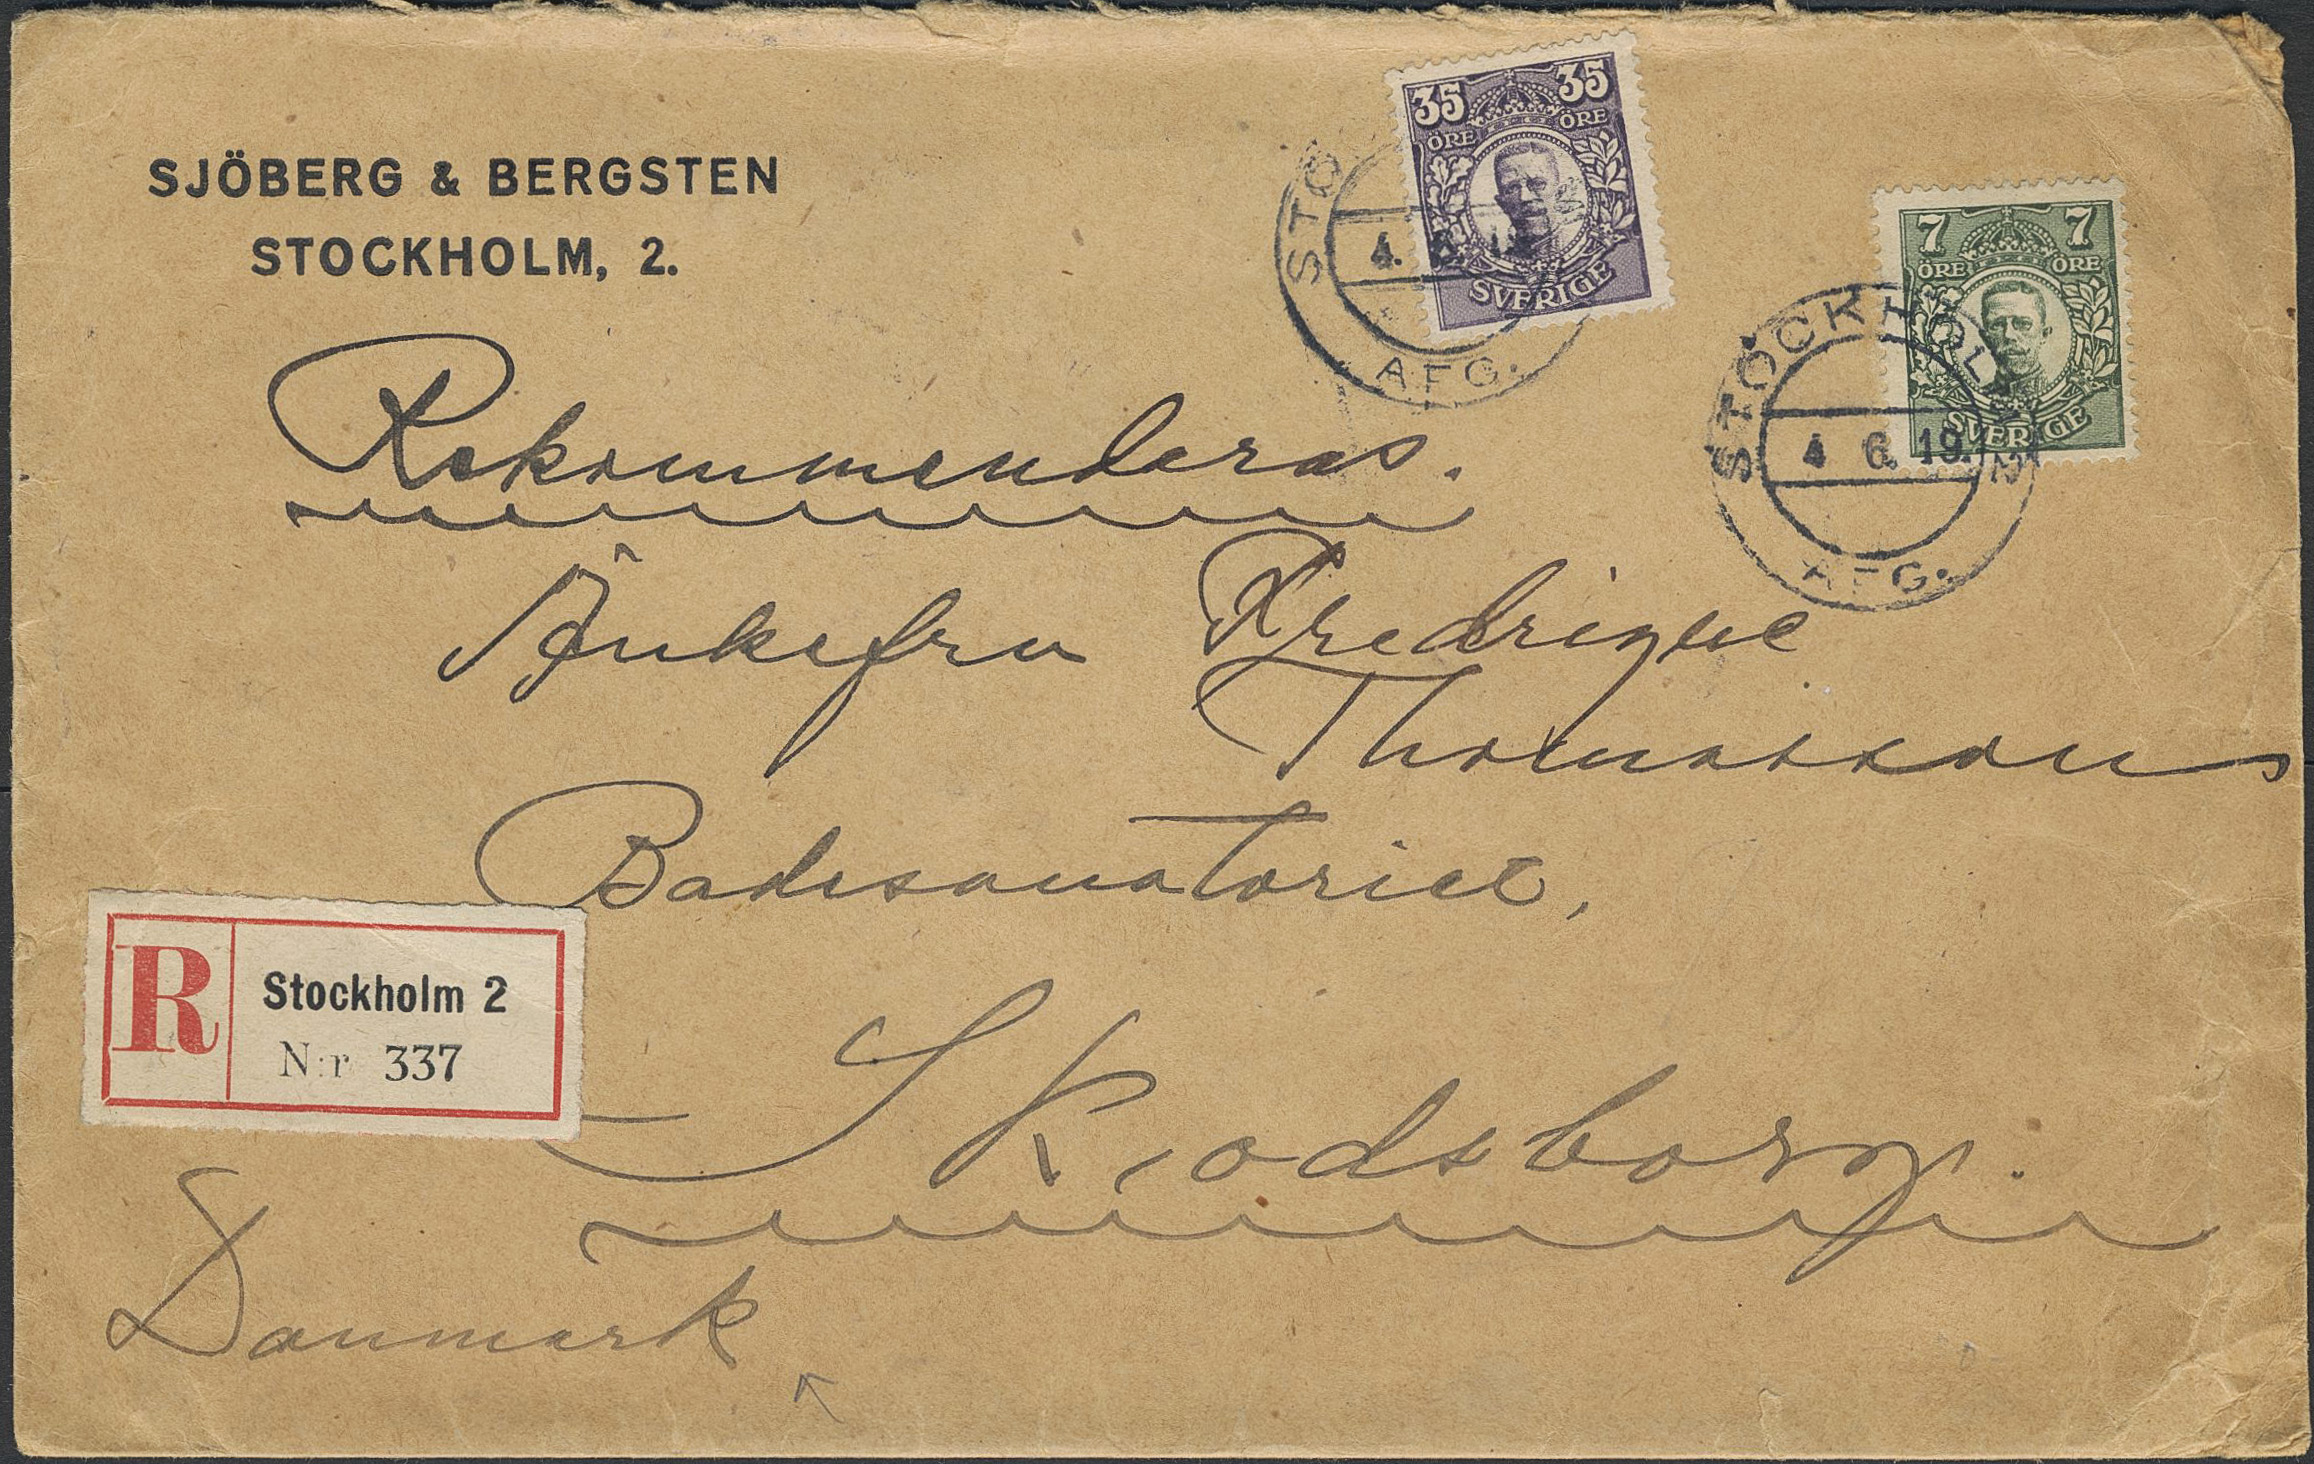 SJÖBERG & BERGSTEN
STOCKHOLM, 2.
35 35
ÖRE ÖRE
SVERIGE
STO
4.
AFG.
7 7
ÖRE ÖRE
SVERIGE
STOCKHOLM 2
4 6. 19.
AFG.
Rekommenderas.
Änkefru Fredrique
Thomassons
Badesanatoriet,
Skodsborg.
Danmark
R
Stockholm 2
N:r 337